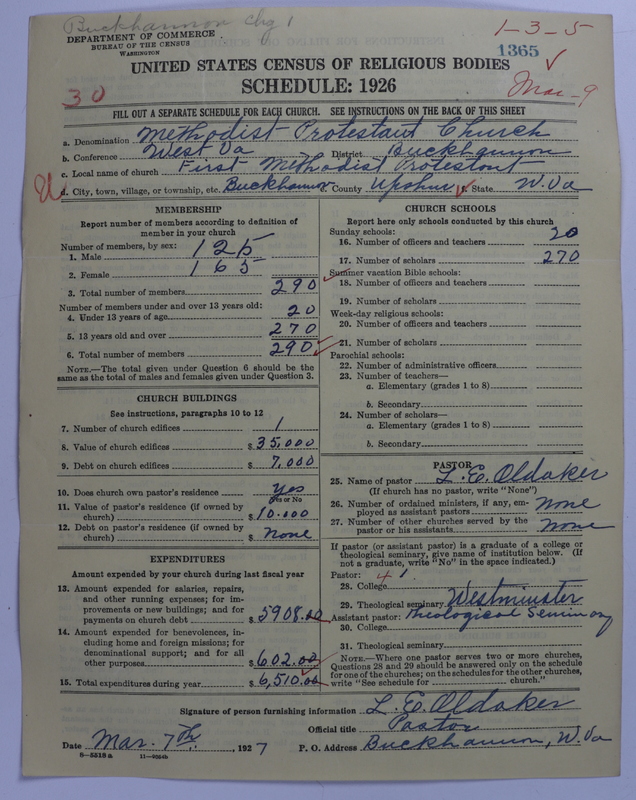 Buckhannon Chg 1
1-3-5
DEPARTMENT OF COMMERCE
BUREAU OF THE CENSUS
WASHINGTON
1365
UNITED STATES CENSUS OF RELIGIOUS BODIES
SCHEDULE: 1926
30
Mar-9
FILL OUT A SEPARATE SCHEDULE FOR EACH CHURCH. SEE INSTRUCTIONS ON THE BACK OF THIS SHEET
a. Denomination Methodist Protestant Church
b. Conference West Va District Buckhannon
c. Local name of church First Methodist Protestant
d. City, town, village, or township, etc. Buckhannon County Upshur State W. Va
MEMBERSHIP
Report number of members according to definition of
member in your church
Number of members, by sex:
1. Male 125
2. Female 165
3. Total number of members 290
Number of members under and over 13 years old:
4. Under 13 years of age 20
5. 13 years old and over 270
6. Total number of members 290
NOTE.—The total given under Question 6 should be
same as the total of males and females given under Question 3.
CHURCH BUILDINGS
See instructions, paragraphs 10 to 12
7. Number of church edifices 1
8. Value of church edifices $ 35,000
9. Debt on church edifices $ 7,000
10. Does church own pastor's residence Yes
Yes or No
11. Value of pastor's residence (if owned by
church) $ 10.000
12. Debt on pastor's residence (if owned by
church) $ none
EXPENDITURES
Amount expended by your church during last fiscal year
13. Amount expended for salaries, repairs,
and other running expenses; for im-
provements or new buildings; and for
payments on church debt $ 5908.00
14. Amount expended for benevolences, in-
cluding home and foreign missions; for
denominational support; and for all
other purposes $ 602.00
15. Total expenditures during year $ 6,510.00
CHURCH SCHOOLS
Report here only schools conducted by this church
Sunday schools:
16. Number of officers and teachers 20
17. Number of scholars 270
Summer vacation Bible schools:
18. Number of officers and teachers
19. Number of scholars
Week-day religious schools:
20. Number of officers and teachers
21. Number of scholars
Parochial schools:
22. Number of administrative officers
23. Number of teachers—
a. Elementary (grades 1 to 8)
b. Secondary
24. Number of scholars—
a. Elementary (grades 1 to 8)
b. Secondary
PASTOR
25. Name of pastor L. E. Oldaker
(If church has no pastor, write "None")
26. Number of ordained ministers, if any, em-
ployed as assistant pastors none
27. Number of other churches served by the
pastor or his assistants none
If pastor (or assistant pastor) is a graduate of a college or
theological seminary, give name of institution below. (If
not a graduate, write "No" in the space indicated.)
Pastor: 4 1
28. College
29. Theological seminary Westminster
Assistant pastor: Theological Seminary
30. College
31. Theological seminary
NOTE.—Where one pastor serves two or more churches,
Questions 28 and 29 should be answered only on the schedule
for one of the churches; on the schedules for the other churches,
write "See schedule for church."
Signature of person furnishing information L. E. Oldaker
Official title Pastor
Date Mar. 7th, 1927 P. O. Address Buckhannon, W. Va